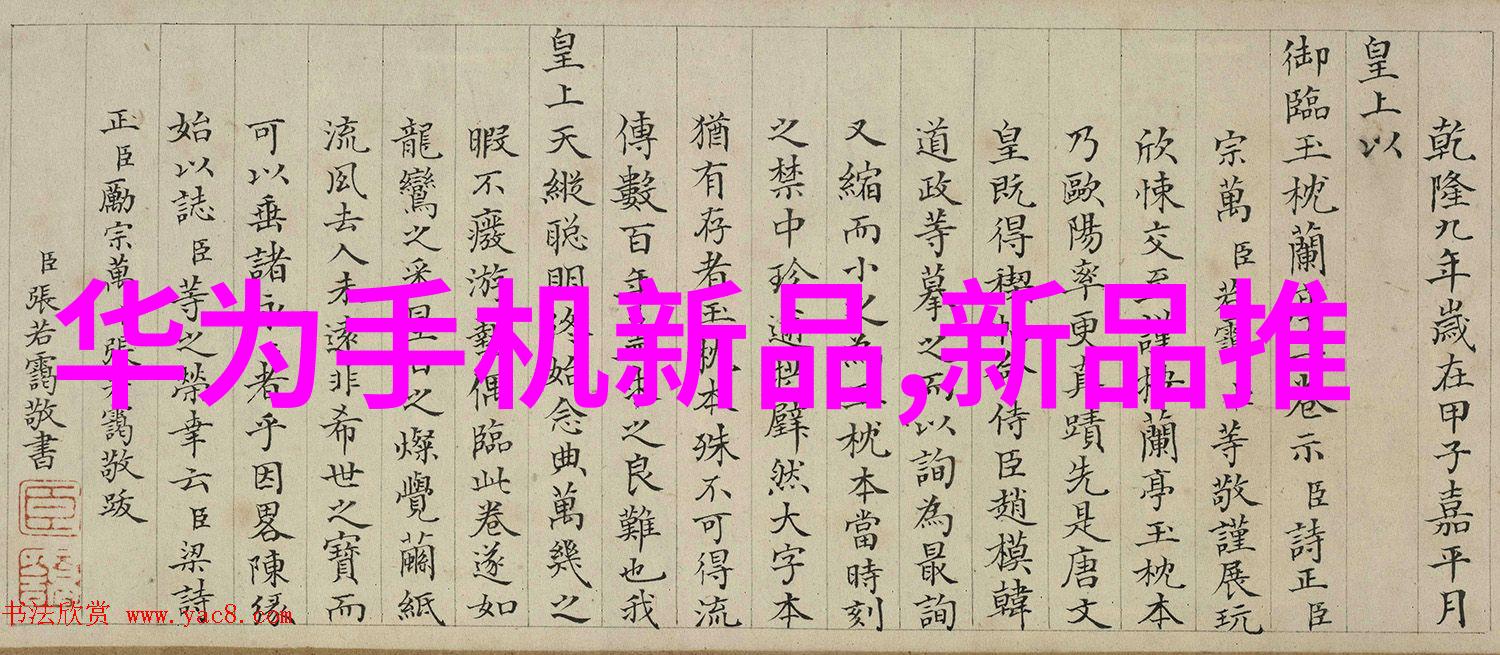 乾隆九年歲在甲子嘉平月
皇上以
御臨玉枕蘭亭一卷示臣詩正臣
宗萬臣若靄臣等敬謹展玩
欣悚交至謹按蘭亭玉枕本
乃歐陽率更真蹟先是唐文
皇既得禊帖命侍臣趙模韓
道政等摹之而以詢為最詢
又縮而小之為玉枕本當時刻
之禁中珍逾拱璧然大字本
猶有存者玉枕本殊不可得流
傳數百年之良難也我
皇上天縱聰明終始念典萬幾之
暇不癈游藝偶臨此卷遂如
龍鸞之采星日之燦覺繭紙
流風去人未遠非希世之寶而
可以垂諸永者乎因畧陳緣
始以誌臣等之榮幸云臣梁詩
正臣勵宗萬臣張若靄敬跋
臣張若靄敬書
华为手机新品,新品推
书法欣赏 www.yac8.com